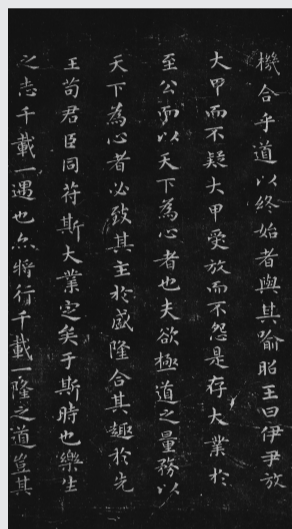 機合乎道以終始者與其喻昭王曰伊尹放
大甲而不疑大甲受放而不怨是存大業於
至公而以天下為心者也夫欲極道之量務以
天下為心者必致其主於盛隆合其趣於先
王苟君臣同符斯大業定矣于斯時也樂生
之志千載一遇也亦將行千載一隆之道豈其